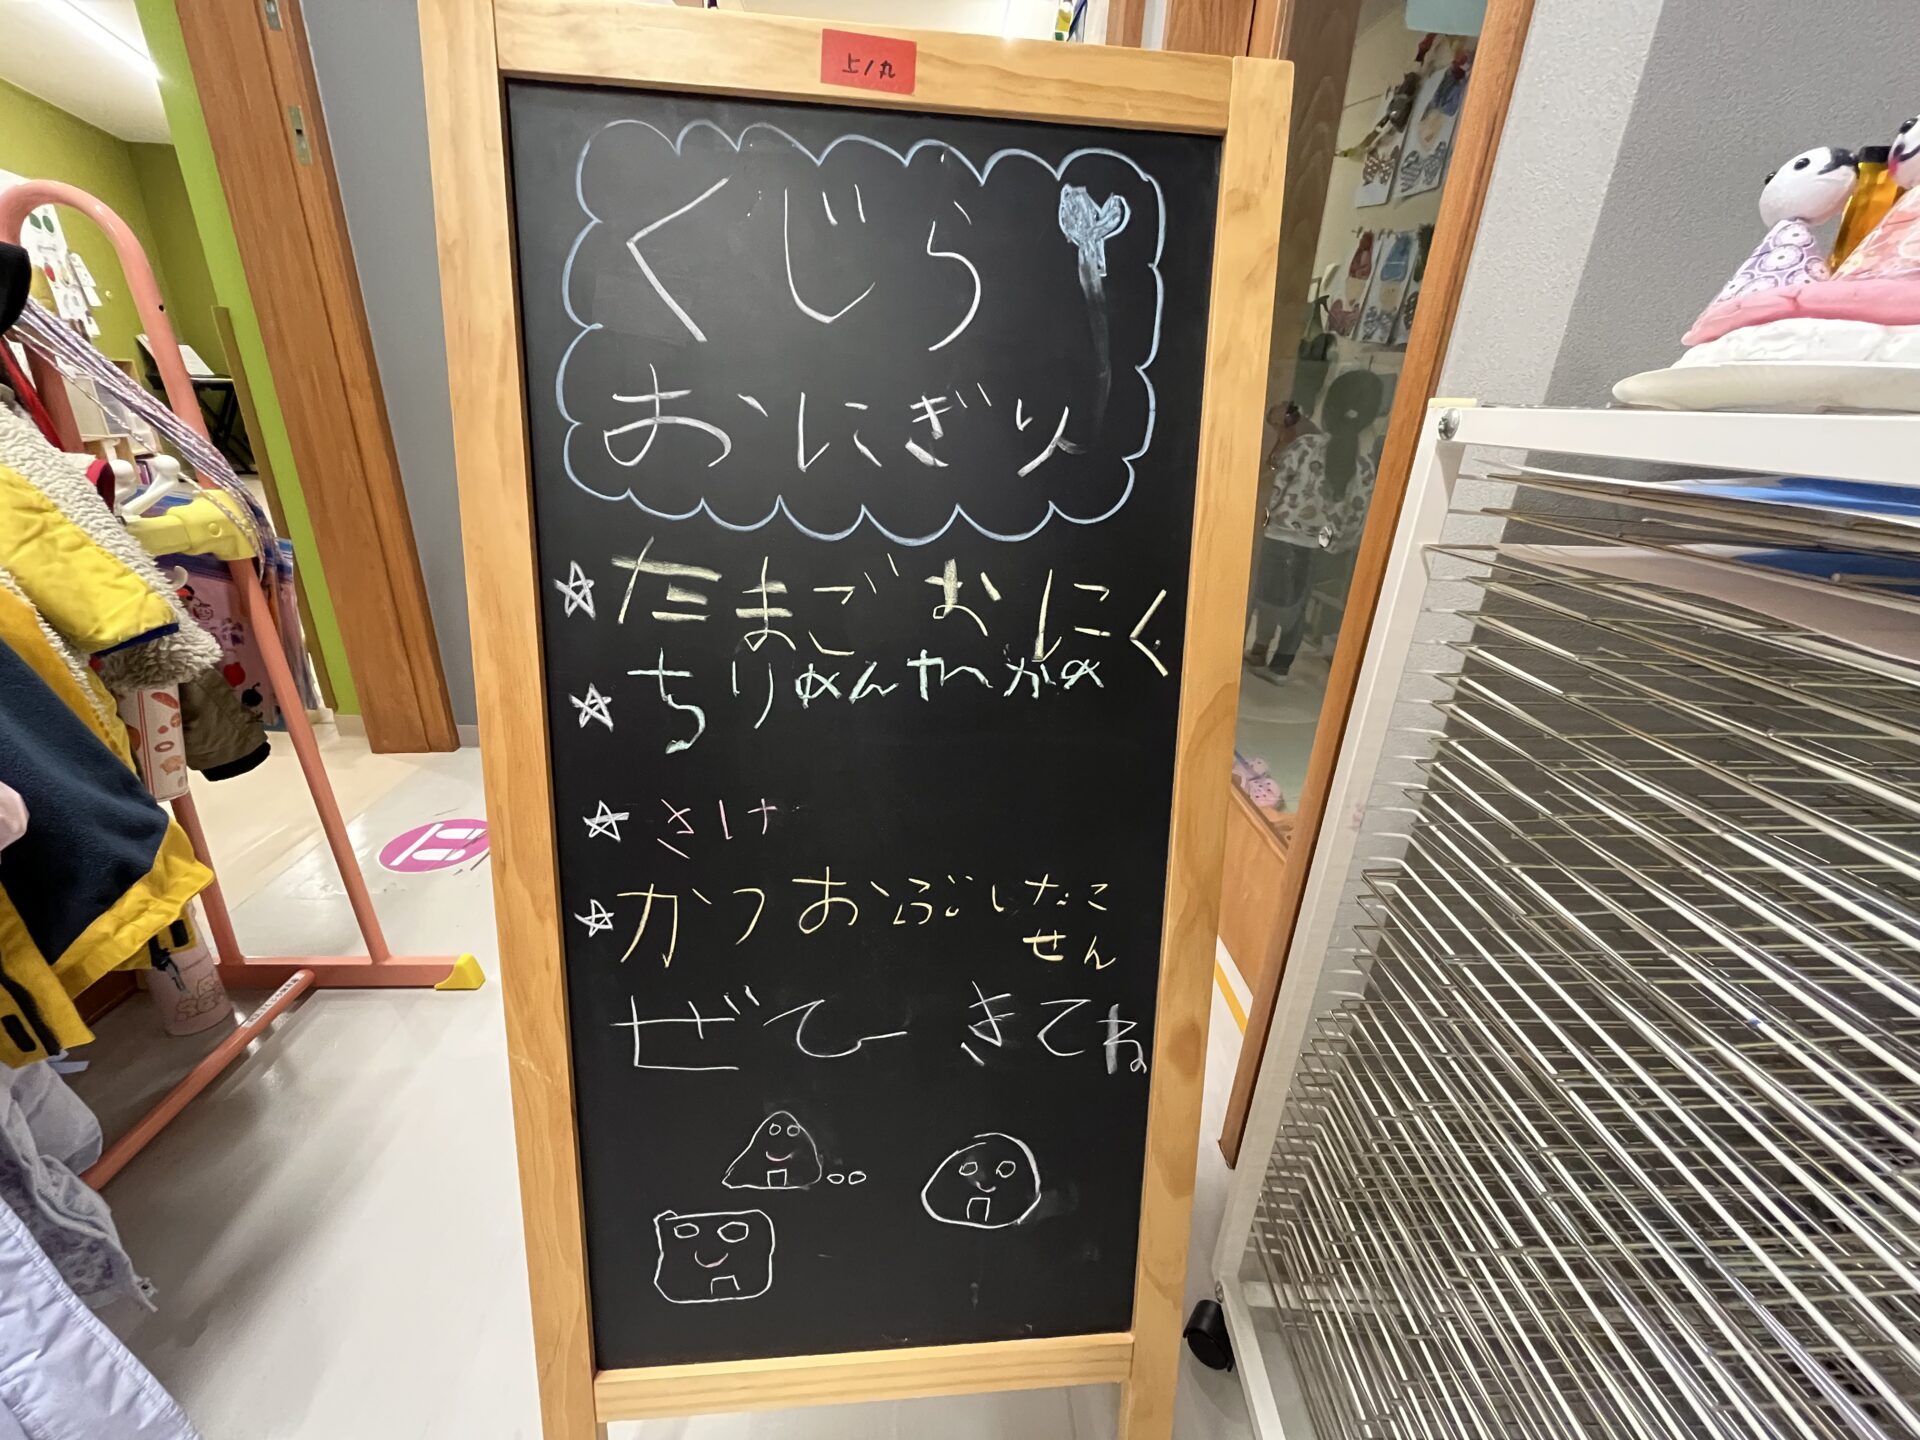 上ノ丸
くじら
おにぎり
☆たまご おにく
☆ちりめんわかめ
☆さけ
☆かつおぶしたこ
せん
ぜひ きてね